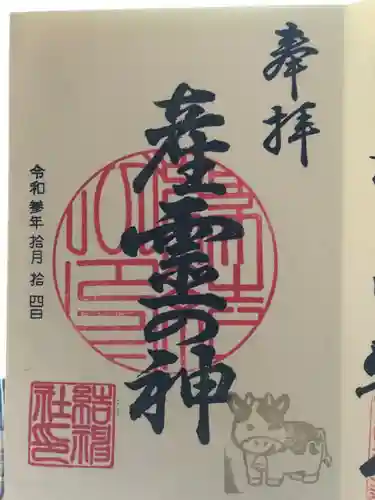 奉拝
産霊の神
令和參年 拾月 拾四日
結神社印